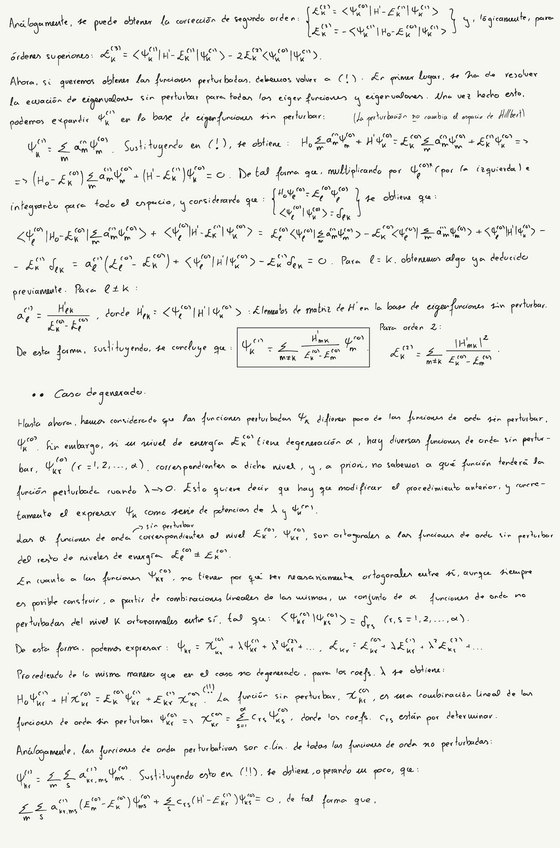 Análogamente, se puede obtener la corrección de segundo orden: { E_K^(2) = <Ψ_K^(0)|H'-E_K^(1)|Ψ_K^(1)> ; E_K^(2) = -<Ψ_K^(1)|H_0-E_K^(0)|Ψ_K^(1)> } y, lógicamente, para
órdenes superiores: E_K^(3) = <Ψ_K^(1)|H'-E_K^(1)|Ψ_K^(1)> - 2E_K^(2)<Ψ_K^(0)|Ψ_K^(1)>.
Ahora, si queremos obtener las funciones perturbadas, debemos volver a (!). En primer lugar, se ha de resolver
la ecuación de eigenvalores sin perturbar para todas las eigenfunciones y eigenvalores. Una vez hecho esto,
podemos expandir Ψ_K^(1) en la base de eigenfunciones sin perturbar: (La perturbación no cambia el espacio de Hilbert)
Ψ_K^(1) = Σ_m a_m^(1) Ψ_m^(0). Sustituyendo en (!), se obtiene: H_0 Σ_m a_m^(1) Ψ_m^(0) + H'Ψ_K^(0) = E_K^(0) Σ_m a_m^(1) Ψ_m^(0) + E_K^(1) Ψ_K^(0) =>
=> (H_0-E_K^(0)) Σ_m a_m^(1) Ψ_m^(0) + (H'-E_K^(1)) Ψ_K^(0) = 0. De tal forma que, multiplicando por Ψ_ℓ^(0)* (por la izquierda) e
integrando para todo el espacio, y considerando que: { H_0 Ψ_ℓ^(0) = E_ℓ^(0) Ψ_ℓ^(0) ; <Ψ_ℓ^(0)|Ψ_K^(0)> = δ_ℓK } se obtiene que:
<Ψ_ℓ^(0)|H_0-E_K^(0)|Σ_m a_m^(1) Ψ_m^(0)> + <Ψ_ℓ^(0)|H'-E_K^(1)|Ψ_K^(0)> = E_ℓ^(0)<Ψ_ℓ^(0)|Σ_m a_m^(1) Ψ_m^(0)> - E_K^(0)<Ψ_ℓ^(0)|Σ_m a_m^(1) Ψ_m^(0)> + <Ψ_ℓ^(0)|H'|Ψ_K^(0)> -
- E_K^(1) δ_ℓK = a_ℓ^(1) (E_ℓ^(0) - E_K^(0)) + <Ψ_ℓ^(0)|H'|Ψ_K^(0)> - E_K^(1) δ_ℓK = 0. Para ℓ=K, obtenemos algo ya deducido
previamente. Para ℓ≠K:
a_ℓ^(1) = H'_ℓK / (E_K^(0) - E_ℓ^(0)), donde H'_ℓK = <Ψ_ℓ^(0)|H'|Ψ_K^(0)>: Elementos de matriz de H' en la base de eigenfunciones sin perturbar.
De esta forma, sustituyendo, se concluye que: Ψ_K^(1) = Σ_{m≠K} H'_mK / (E_K^(0) - E_m^(0)) Ψ_m^(0). Para orden 2: E_K^(2) = Σ_{m≠K} |H'_mK|^2 / (E_K^(0) - E_m^(0)).
•• Caso degenerado.
Hasta ahora, hemos considerado que las funciones perturbadas Ψ_K difieren poco de las funciones de onda sin perturbar,
Ψ_K^(0). Sin embargo, si un nivel de energía E_K^(0) tiene degeneración α, hay diversas funciones de onda sin pertur-
bar, Ψ_Kr^(0) (r=1,2,...,α), correspondientes a dicho nivel, y, a priori, no sabemos a qué función tenderá la
función perturbada cuando λ→0. Esto quiere decir que hay que modificar el procedimiento anterior, y concre-
tamente el expresar Ψ_K como serie de potencias de λ y Ψ_K^(n).
Las α funciones de onda sin perturbar correspondientes al nivel E_K^(0), Ψ_Kr^(0), son ortogonales a las funciones de onda sin perturbar
del resto de niveles de energía E_ℓ^(0) ≠ E_K^(0).
En cuanto a las funciones Ψ_Kr^(0), no tienen por qué ser necesariamente ortogonales entre sí, aunque siempre
es posible construir, a partir de combinaciones lineales de las mismas, un conjunto de α funciones de onda no
perturbadas del nivel K ortonormales entre sí, tal que: <Ψ_Kr^(0)|Ψ_Ks^(0)> = δ_rs (r,s=1,2,...,α).
De esta forma, podemos expresar: Ψ_Kr = χ_Kr^(0) + λΨ_Kr^(1) + λ²Ψ_Kr^(2) + ..., E_Kr = E_K^(0) + λE_Kr^(1) + λ²E_Kr^(2) + ...
Procediendo de la misma manera que en el caso no degenerado, para los coefs. λ se obtiene:
H_0 Ψ_Kr^(1) + H'χ_Kr^(0) = E_K^(0) Ψ_Kr^(1) + E_Kr^(1) χ_Kr^(0) (!!). La función sin perturbar, χ_Kr^(0), es una combinación lineal de las
funciones de onda sin perturbar Ψ_Kr^(0) => χ_Kr^(0) = Σ_{s=1}^α c_rs Ψ_Ks^(0), donde los coefs. c_rs están por determinar.
Análogamente, las funciones de onda perturbativas son c.lin. de todas las funciones de onda no perturbadas:
Ψ_Kr^(1) = Σ_m Σ_s a_Kr,ms^(1) Ψ_ms^(0). Sustituyendo esto en (!!), se obtiene, operando un poco, que:
Σ_m Σ_s a_Kr,ms^(1) (E_m^(0) - E_K^(0)) Ψ_ms^(0) + Σ_s c_rs (H' - E_Kr^(1)) Ψ_Ks^(0) = 0, de tal forma que,